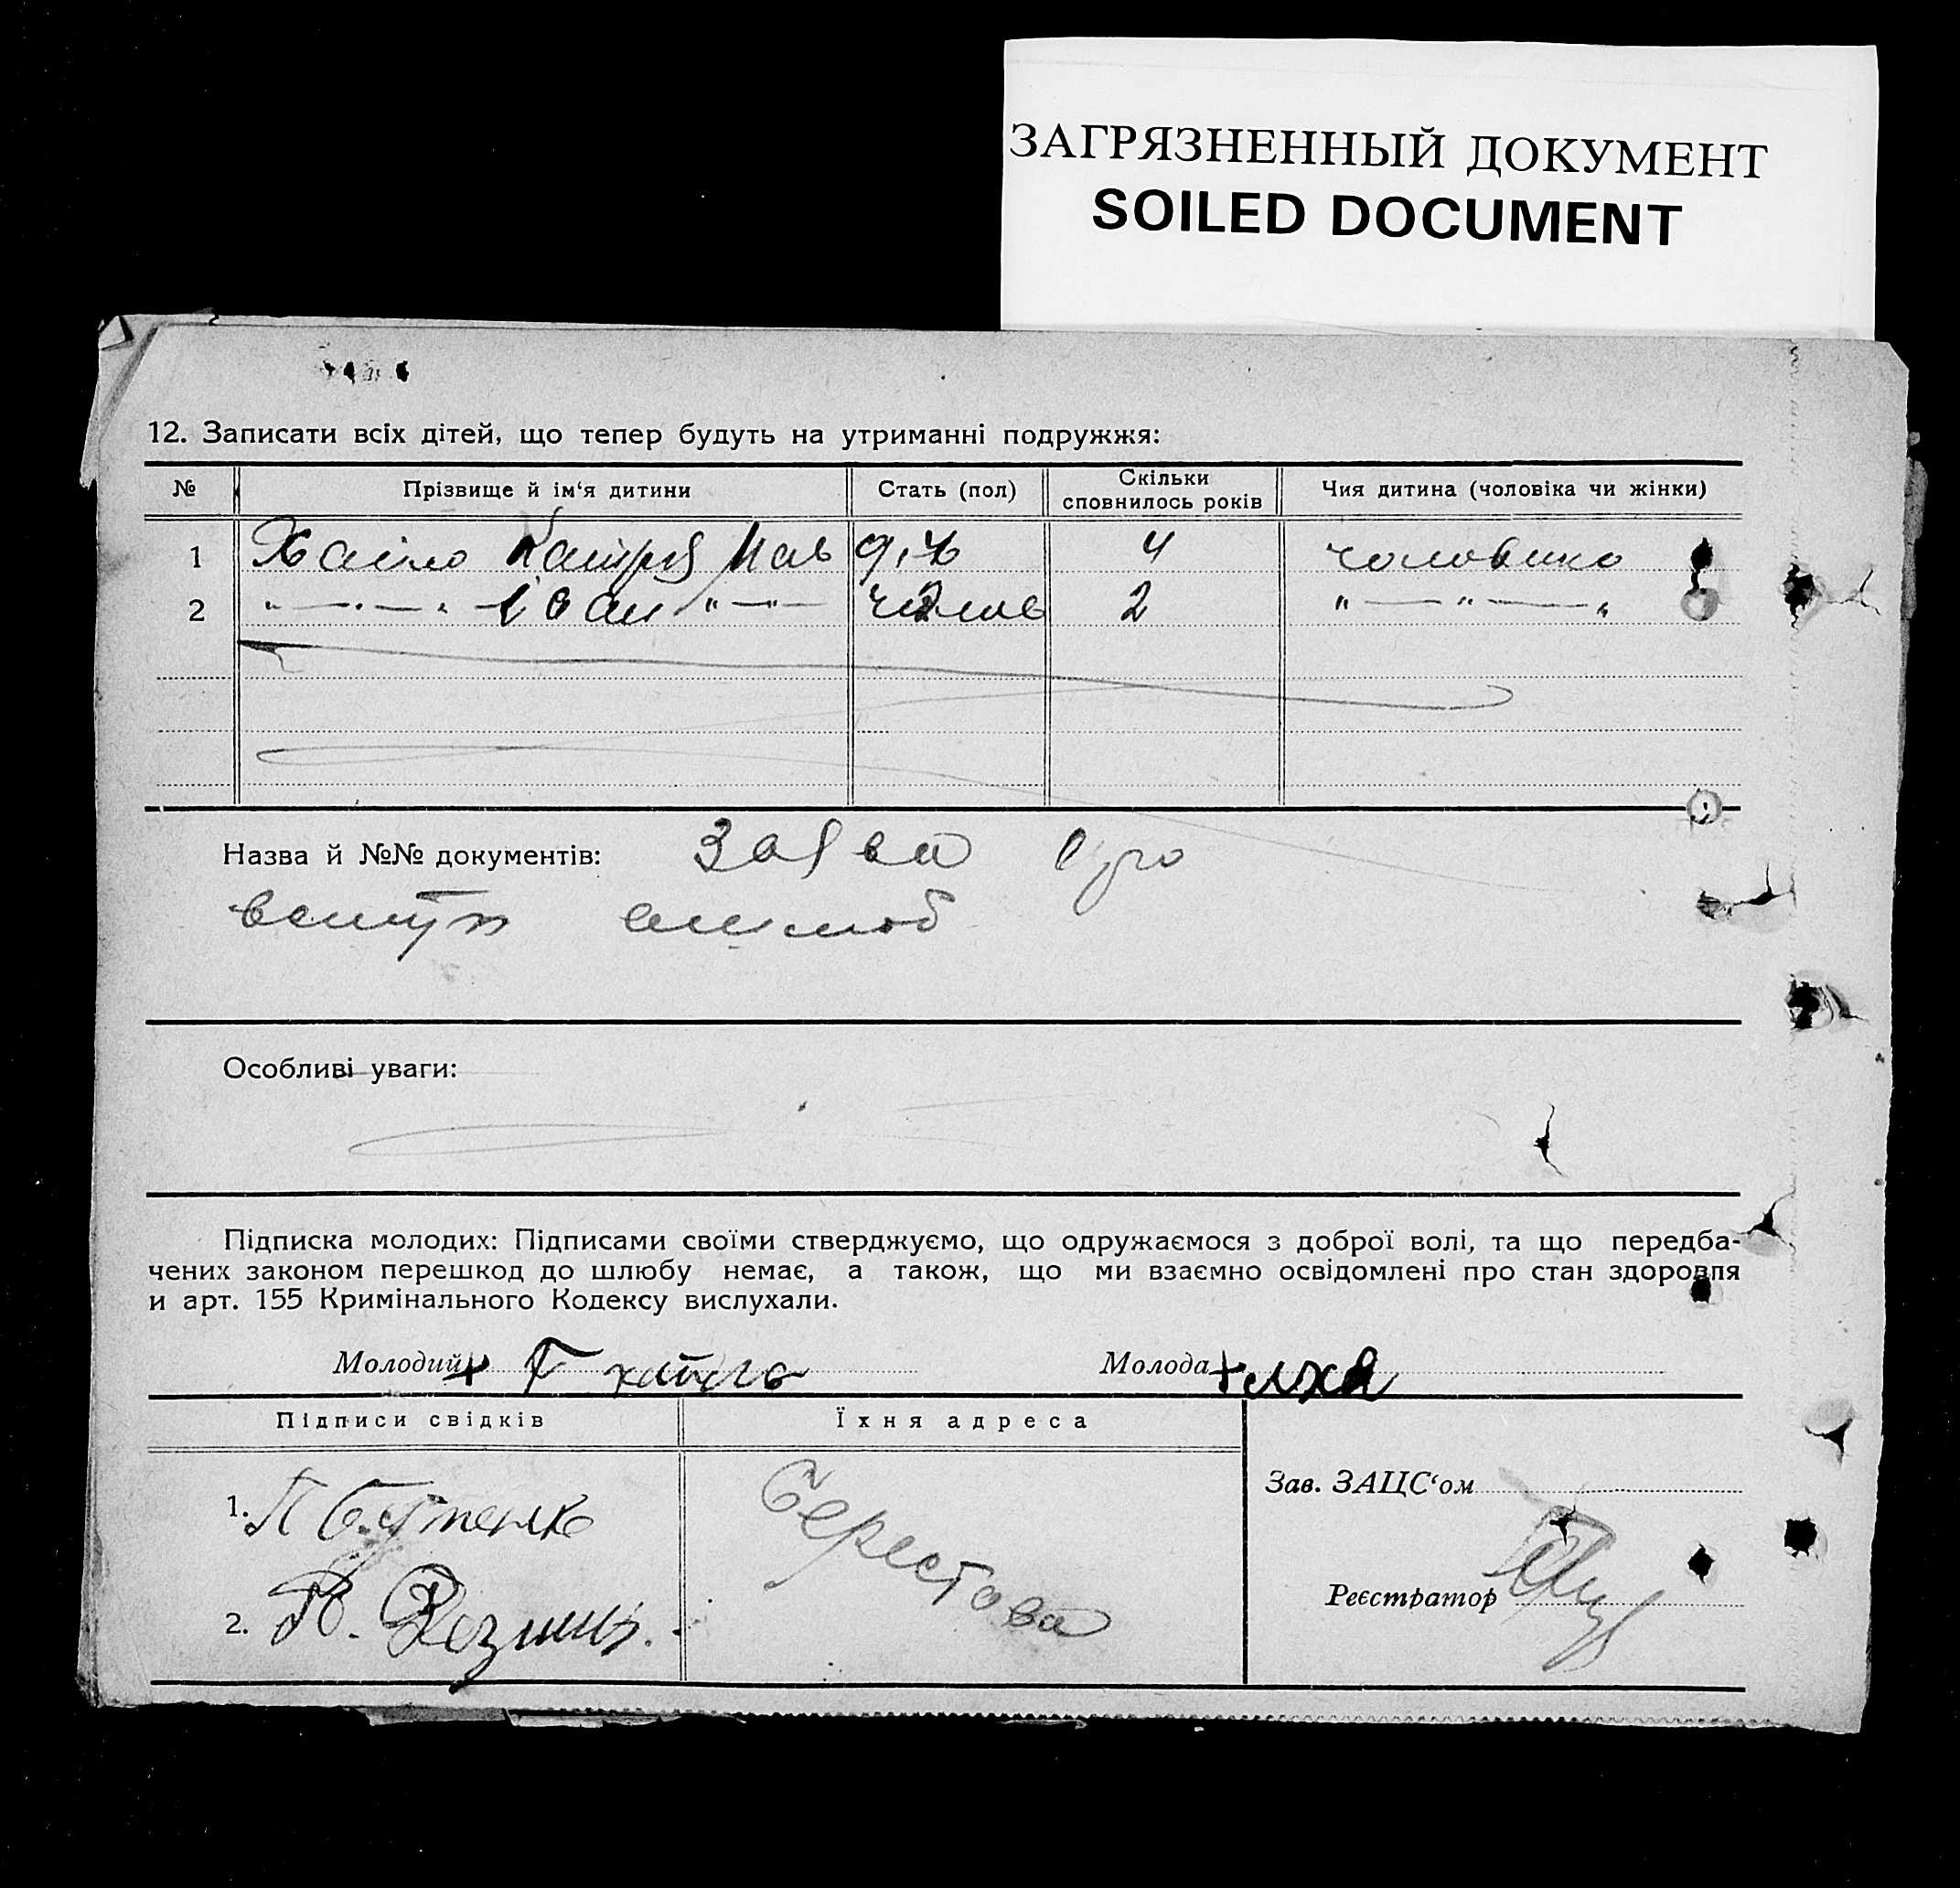 ЗАГРЯЗНЕННЫЙ ДОКУМЕНТ
SOILED DOCUMENT
12. Записати всіх дітей, що тепер будуть на утриманні подружжя:
№ Прізвище й ім‘я дитини Стать (пол) Скільки сповнилось років Чия дитина (чоловіка чи жінки)
1 Хайло Катря Пав 4 чоловика
2 " — " — " Іван " — " — 2 " — " — "
Назва й №№ документів: Заява про
вступ шлюб
Особливі уваги:
Підписка молодих: Підписами своїми стверджуємо, що одружаємося з доброї волі, та що передба-
чених законом перешкод до шлюбу немає, а також, що ми взаємно освідомлені про стан здоровля
и арт. 155 Кримінального Кодексу вислухали.
Молодий + Молода +
Підписи свідків Їхня адреса
Зав. ЗАЦС‘ом
1. П
Берестова
Реєстратор
2.